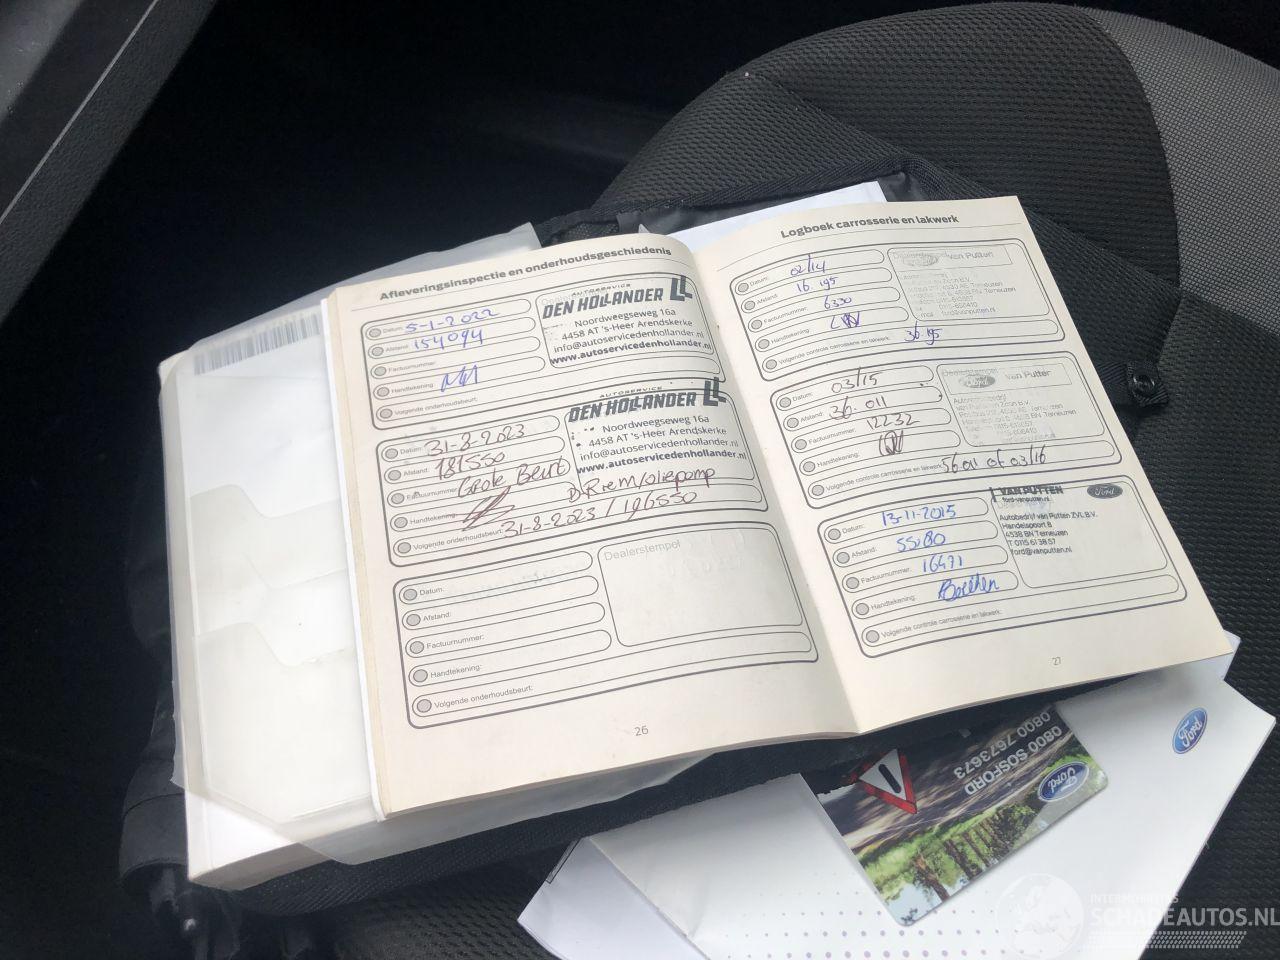 Afleveringsinspectie en onderhoudsgeschiedenis
Datum: 5-1-2022
Afstand: 154094
Factuurnummer:
Handtekening:
Volgende onderhoudsbeurt:
AUTOSERVICE
DEN HOLLANDER
Noordweegseweg 16a
4458 AT 's-Heer Arendskerke
info@autoservicedenhollander.nl
www.autoservicedenhollander.nl
Datum: 31-8-2023
Afstand: 181550
Factuurnummer: Grote Beurt
Handtekening: D.Riem/oliepomp
Volgende onderhoudsbeurt: 31-8-2023 / 196550
AUTOSERVICE
DEN HOLLANDER
Noordweegseweg 16a
4458 AT 's-Heer Arendskerke
info@autoservicedenhollander.nl
www.autoservicedenhollander.nl
Datum:
Afstand:
Factuurnummer:
Handtekening:
Volgende onderhoudsbeurt:
Dealerstempel
26
Logboek carrosserie en lakwerk
Datum: 02/14
Afstand: 16.195
Factuurnummer: 6330
Handtekening:
Volgende controle carrosserie en lakwerk: 36.195
Dealerstempel
van Putten
Datum: 03/15
Afstand: 36.011
Factuurnummer: 12232
Handtekening:
Volgende controle carrosserie en lakwerk: 56.011 of 03/16
Dealerstempel
Ford van Putten
Datum: 13-11-2015
Afstand: 55180
Factuurnummer: 16471
Handtekening:
Volgende controle carrosserie en lakwerk:
VAN PUTTEN
ford-vanputten.nl
Ford
Autobedrijf van Putten ZVL B.V.
Handelspoort 8
4538 BN Terneuzen
T 0115 61 38 57
ford@vanputten.nl
27
0800 SOSFORD
0800 7673673
Ford
Ford
SCHADEAUTOS.NL